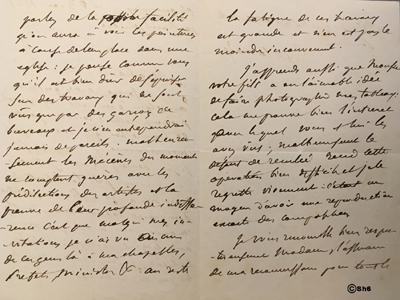 parler de la facilité
qu'on aura à voir les peintures
à cause de leur place dans une
église : je pense comme vous
qu'il est bien dur de
sur des travaux qui ne sont
vus que par des garçons de
bureaux et je n'en entreprendrai
jamais de pareils. malheureu-
sement les Mécènes du moment
ne comptent guères avec les
prédilections des artistes et la
preuve de leur profonde indiffé-
rence c'est que malgré mes in-
vitations je n'ai vu
de ces gens là à ma chapelle,
Préfets, ministres &c.
la fatigue de ces travaux
est grande et n'en est pas le
moindre inconvénient.
J'apprends aussi que Monsieur
votre fils a eu l'aimable idée
de faire photographier mes tableaux.
cela me prouve bien l'intérêt
que vous et lui
avez : malheureusement le
cette
opération bien difficile et je le
regrette vivement : c'était un
moyen d'avoir une reproduction
exacte des compositions
Je vous bien respec-
tueusement Madame, l'assurance
de ma reconnaissance pour
©Shs